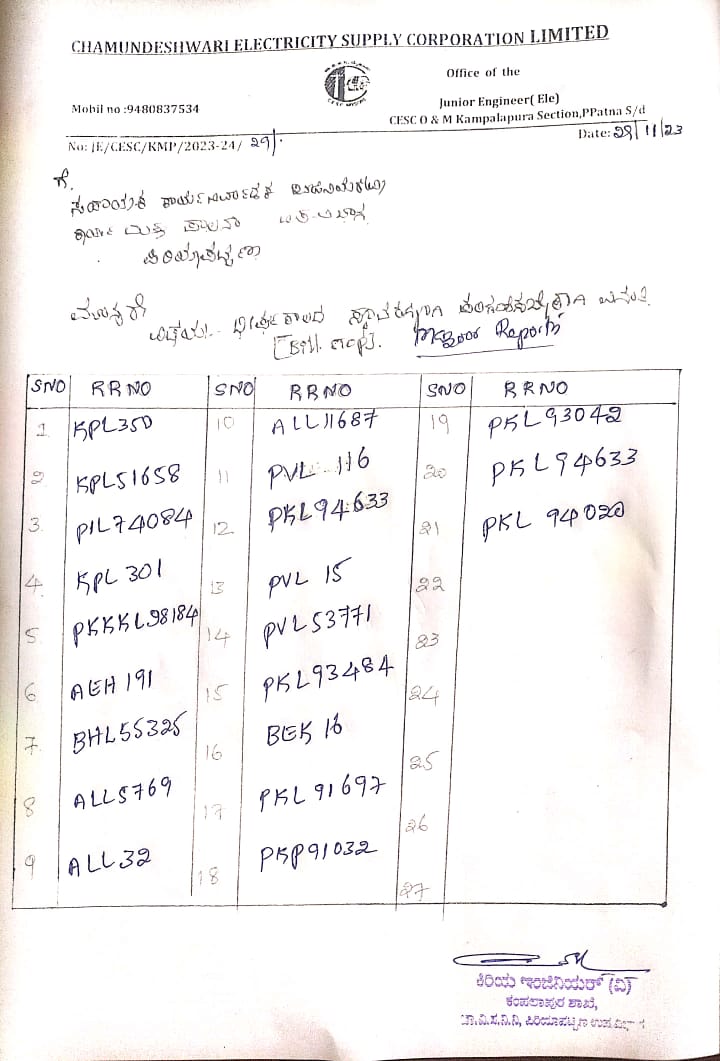 CHAMUNDESHWARI ELECTRICITY SUPPLY CORPORATION LIMITED
Office of the
Mobil no :9480837534
Junior Engineer( Ele)
CESC O & M Kampalapura Section,PPatna S/d
No: JE/CESC/KMP/2023-24/ 29/.
Date: 29/11/23
ಗೆ.
ಸಹಾಯಕ ಕಾರ್ಯನಿರ್ವಾಹಕ
ಕಾರ್ಯ ಮತ್ತು ಪಾಲನಾ
ಪಿರಿಯಾಪಟ್ಟಣ
ಮಾನ್ಯರೇ
ವಿಷಯ:-
Reports
SNO RRNO SNO RRNO SNO RRNO
1 KPL350 10 ALL11687 19 PKL93042
2 KPL51658 11 PVL 116 20 PKL94633
3. PIL74084 12 PKL94633 21 PKL 94020
4. KPL 301 13 PVL 15 22
5. PKKKL98184 14 PVL53771 23
6 AEH 191 15 PKL93484 24
7. BHL55325 16 BEK 16 25
8 ALL5769 17 PKL91697 26
9 ALL32 18 PKP91032 27
ಕಿರಿಯ ಇಂಜಿನಿಯರ್ (ವಿ)
ಕಂಪಲಾಪುರ ಶಾಖೆ,
ಚಾ.ವಿ.ಸ.ನಿ.ನಿ, ಪಿರಿಯಾಪಟ್ಟಣ